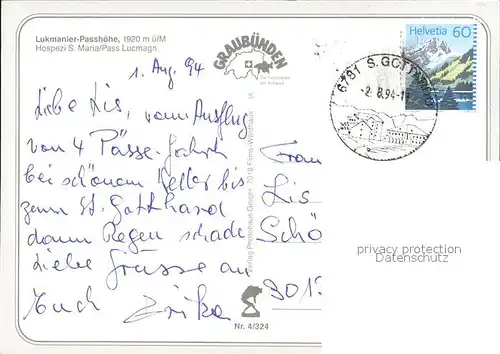 Lukmanier-Passhöhe, 1920 m ü/M
Hospezi S. Maria/Pass Lucmagn
GRAUBÜNDEN
Die Ferienecke
der Schweiz
Helvetia 60
6781 S. GOTTARDO
-2.8.94-1
1. Aug. 94
Liebe Lis, vom Ausflug
von 4 Pässe-Fahrt
bei schönem Wetter bis
zum St. Gotthard
dann Regen schade
Liebe Grüsse an
Euch Erika
Verlag Photohaus Geiger, 7018 Flims-Waldhaus
Frau
Lis
Schö
301
privacy protection
Datenschutz
Nr. 4/324